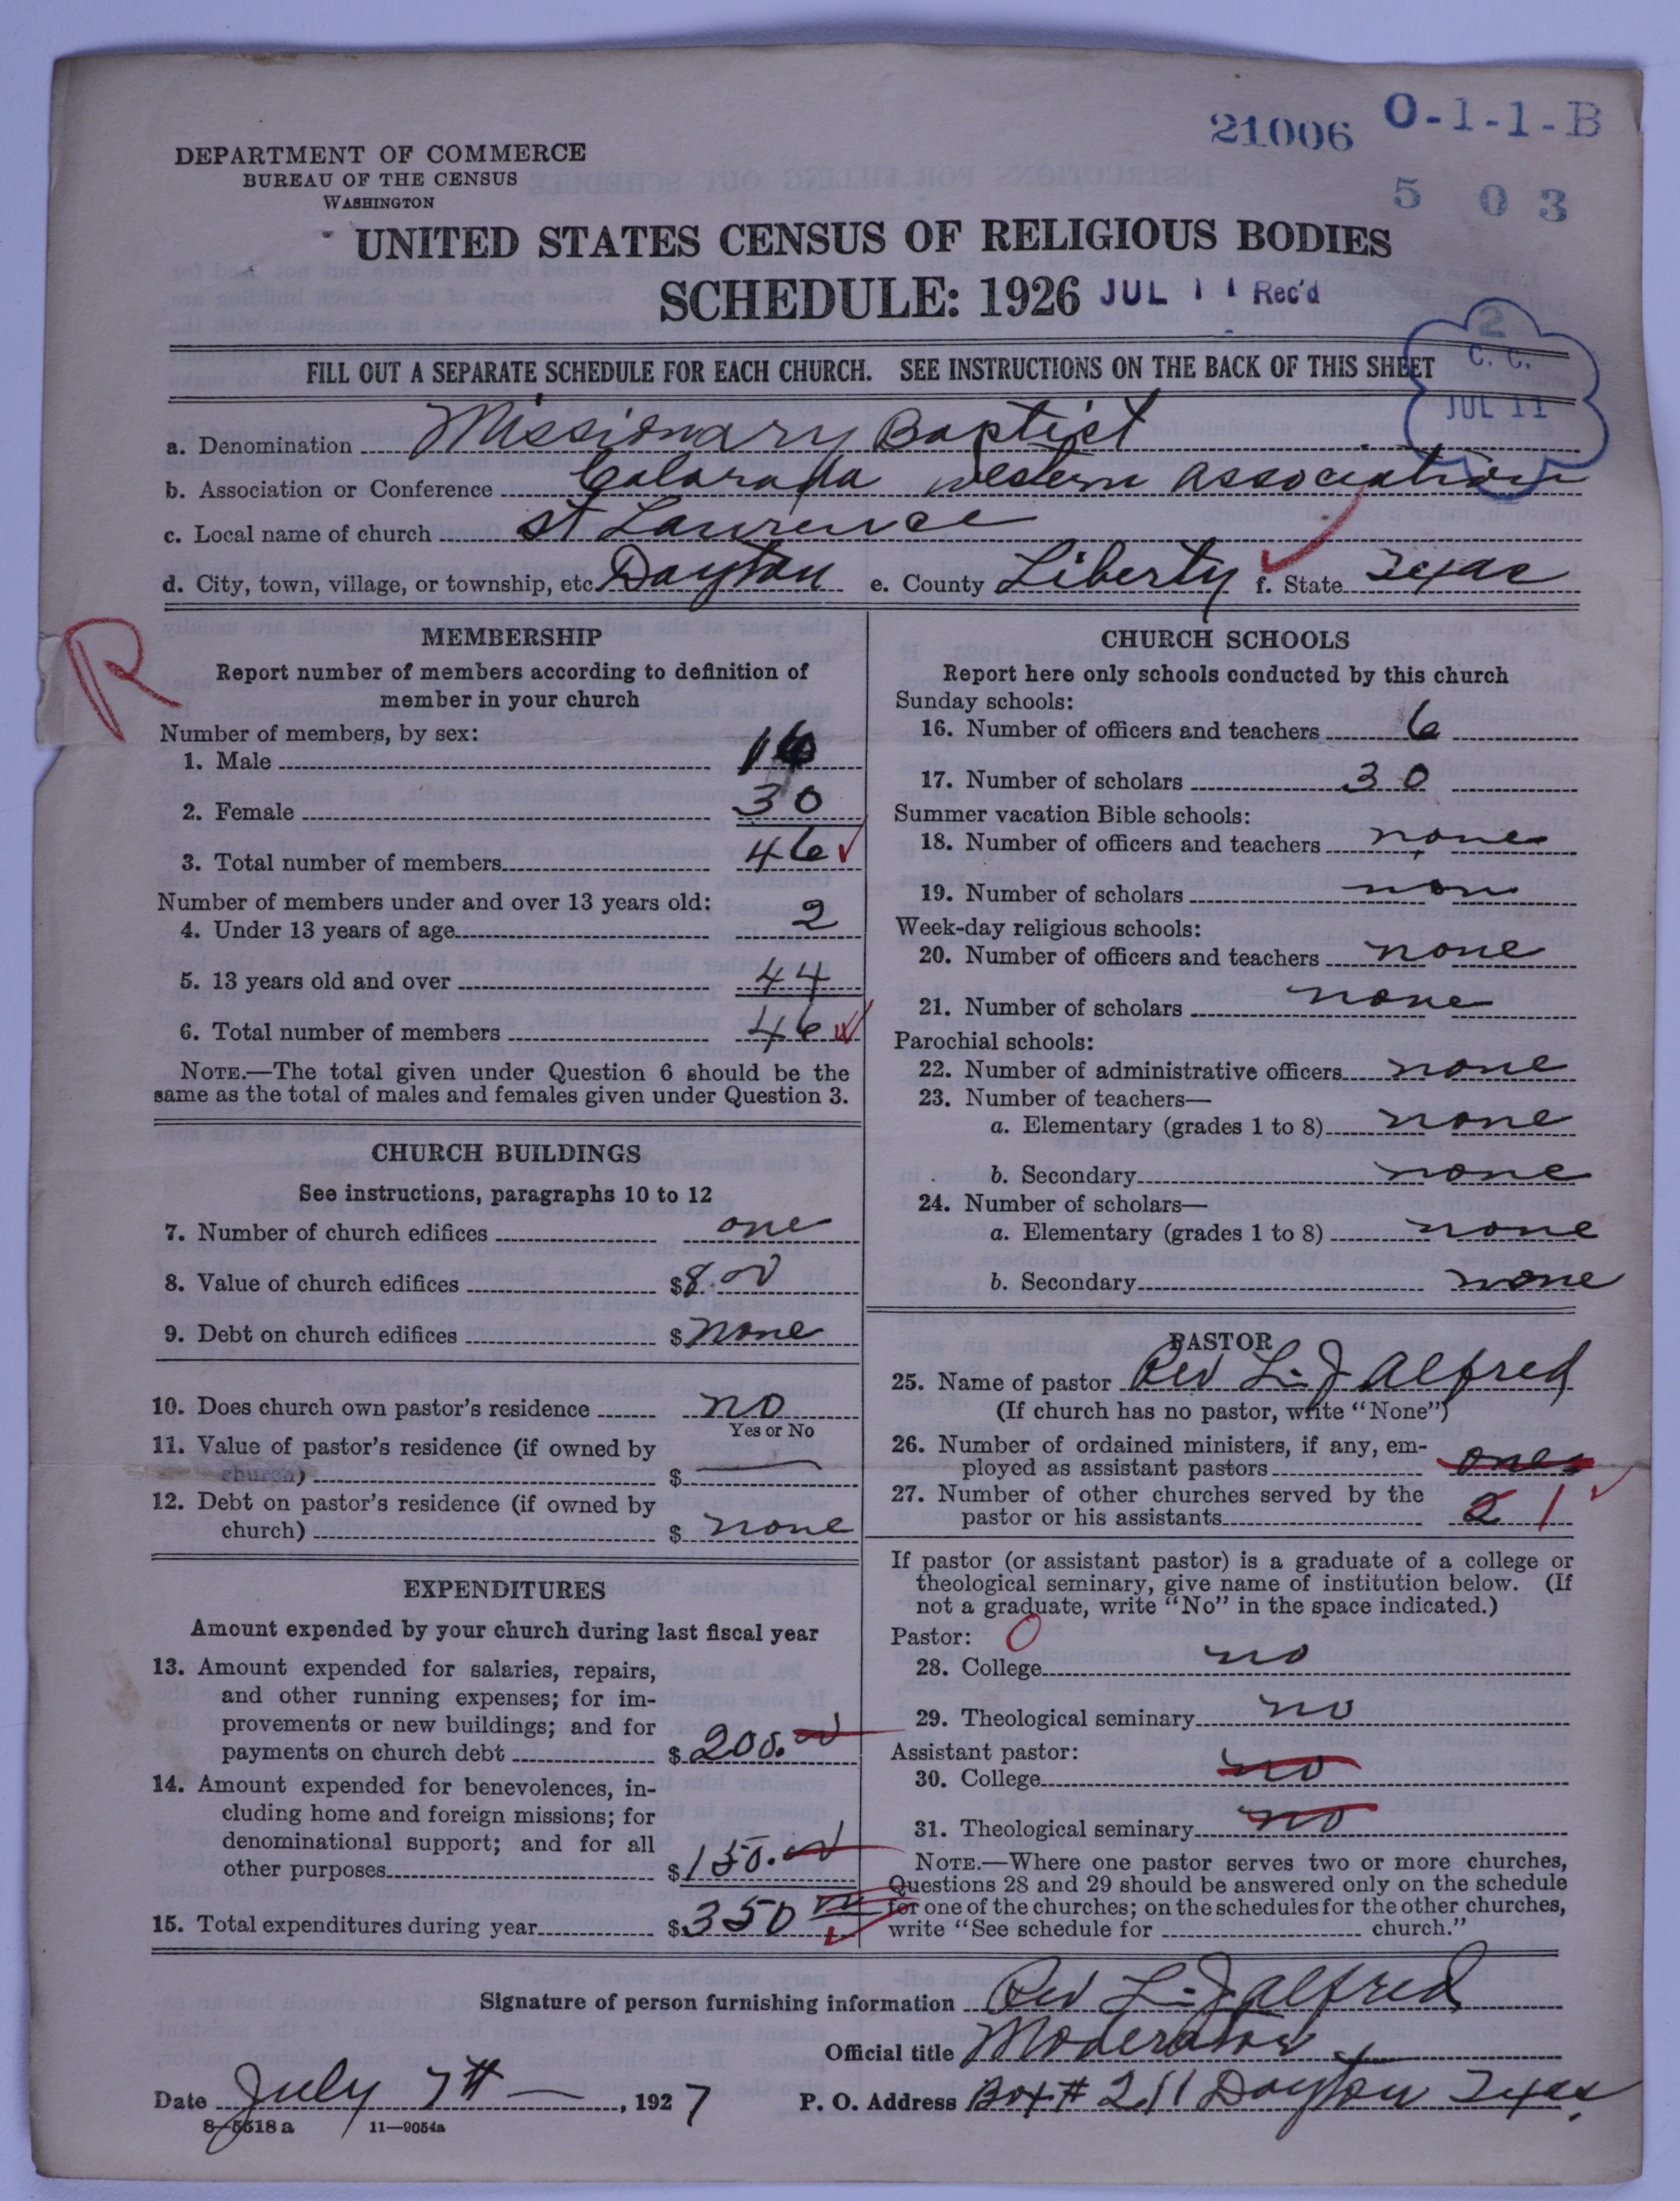 21006 O-1-1-B
5 0 3
DEPARTMENT OF COMMERCE
BUREAU OF THE CENSUS
WASHINGTON
UNITED STATES CENSUS OF RELIGIOUS BODIES
SCHEDULE: 1926 JUL 11 Rec'd
2
C. C.
JUL 11
FILL OUT A SEPARATE SCHEDULE FOR EACH CHURCH. SEE INSTRUCTIONS ON THE BACK OF THIS SHEET
a. Denomination Missionary Baptist
b. Association or Conference Colorado Western Association
c. Local name of church St Lawrence
d. City, town, village, or township, etc. Dayton e. County Liberty f. State Texas
R
MEMBERSHIP
Report number of members according to definition of
member in your church
Number of members, by sex:
1. Male 16
2. Female 30
3. Total number of members 46
Number of members under and over 13 years old:
4. Under 13 years of age 2
5. 13 years old and over 44
6. Total number of members 46
NOTE.—The total given under Question 6 should be the
same as the total of males and females given under Question 3.
CHURCH BUILDINGS
See instructions, paragraphs 10 to 12
7. Number of church edifices one
8. Value of church edifices $8.00
9. Debt on church edifices $none
10. Does church own pastor's residence no
Yes or No
11. Value of pastor's residence (if owned by
church) $
12. Debt on pastor's residence (if owned by
church) $ none
EXPENDITURES
Amount expended by your church during last fiscal year
13. Amount expended for salaries, repairs,
and other running expenses; for im-
provements or new buildings; and for
payments on church debt $200.00
14. Amount expended for benevolences, in-
cluding home and foreign missions; for
denominational support; and for all
other purposes $150.00
15. Total expenditures during year $350
CHURCH SCHOOLS
Report here only schools conducted by this church
Sunday schools:
16. Number of officers and teachers 6
17. Number of scholars 30
Summer vacation Bible schools:
18. Number of officers and teachers none
19. Number of scholars non
Week-day religious schools:
20. Number of officers and teachers none
21. Number of scholars none
Parochial schools:
22. Number of administrative officers none
23. Number of teachers—
a. Elementary (grades 1 to 8) none
b. Secondary none
24. Number of scholars—
a. Elementary (grades 1 to 8) none
b. Secondary none
PASTOR
25. Name of pastor Rev L. J Alfred
(If church has no pastor, write "None")
26. Number of ordained ministers, if any, em-
ployed as assistant pastors one
27. Number of other churches served by the
pastor or his assistants 2 1
If pastor (or assistant pastor) is a graduate of a college or
theological seminary, give name of institution below. (If
not a graduate, write "No" in the space indicated.)
Pastor: 0
28. College no
29. Theological seminary no
Assistant pastor:
30. College no
31. Theological seminary no
NOTE.—Where one pastor serves two or more churches,
Questions 28 and 29 should be answered only on the schedule
for one of the churches; on the schedules for the other churches,
write "See schedule for church."
Signature of person furnishing information Rev L. J Alfred
Official title Moderator
Date July 7th, 1927 P. O. Address Box # 211 Dayton Texas
8-5518a 11—9054a